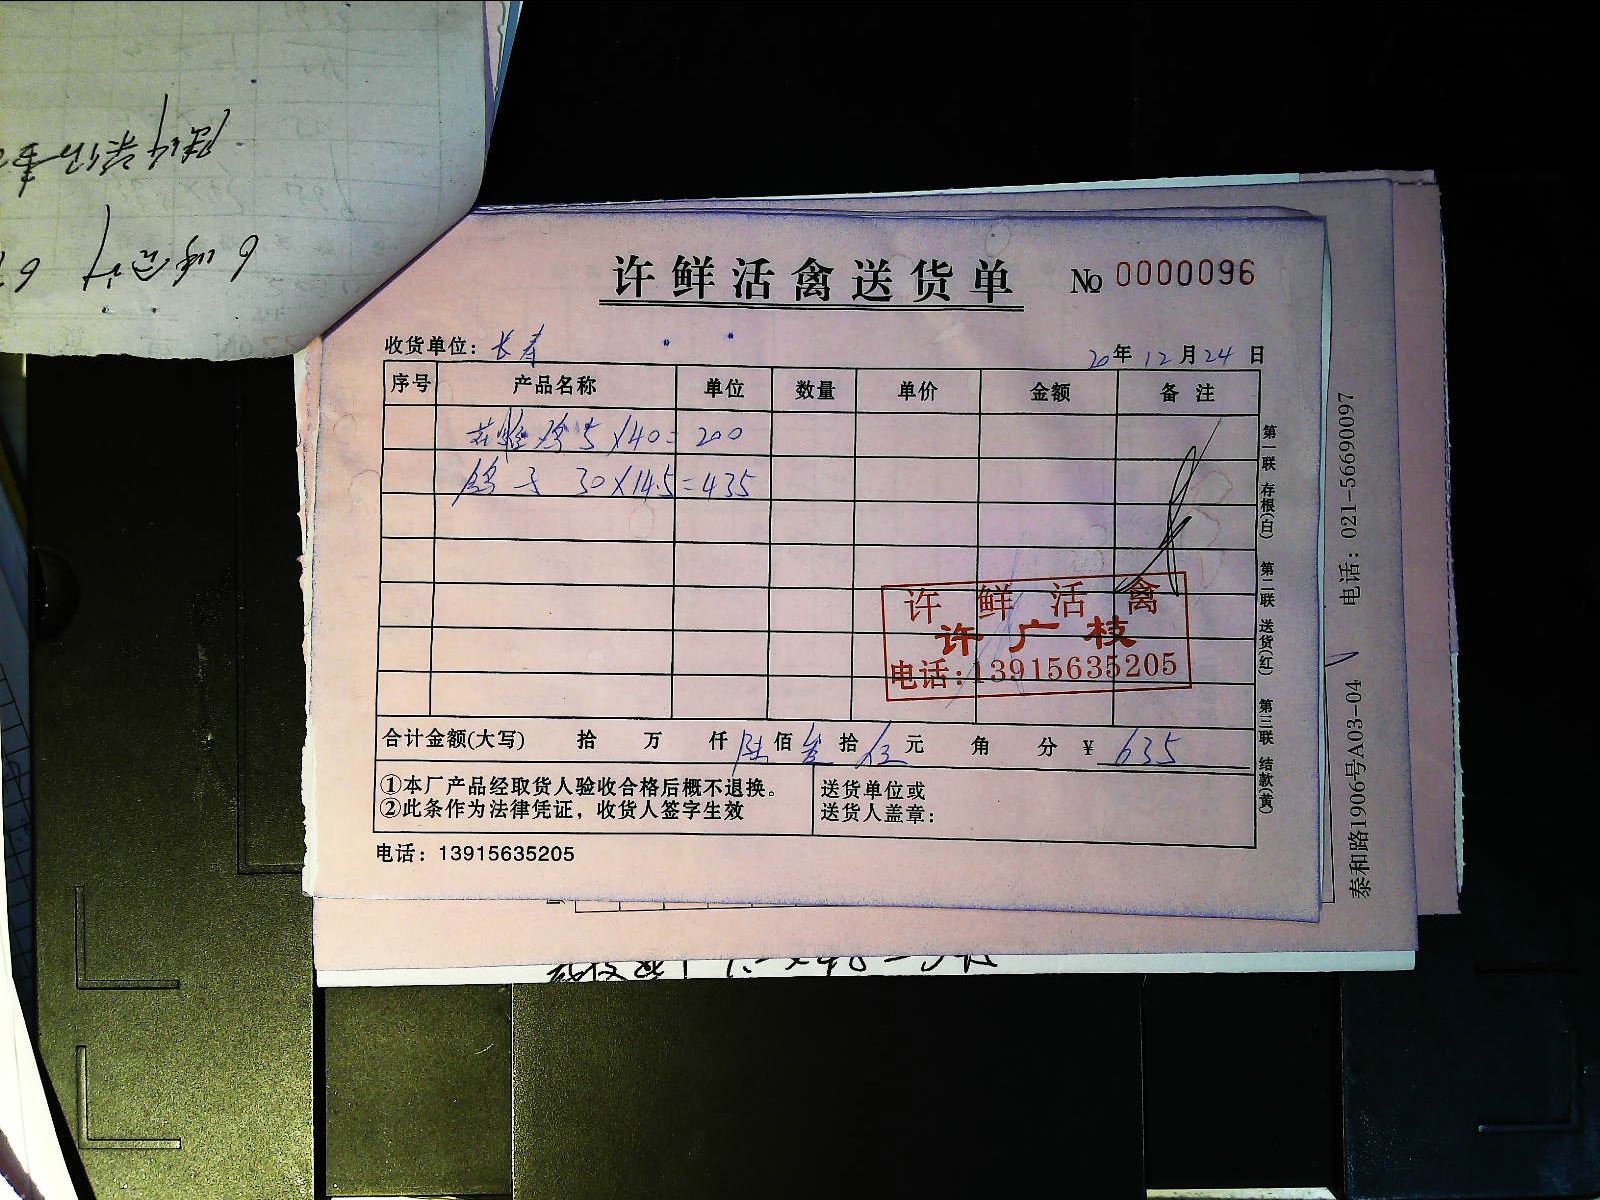 许鲜活禽送货单 № 0000096
收货单位：长寿 20年12月24日
序号 产品名称 单位 数量 单价 金额 备注
5×40=200
鸽子 30×14.5=435
许鲜活禽
许广枝
电话:13915635205
合计金额(大写) 拾 万 仟 陆 佰 叁 拾 伍 元 角 分 ¥ 635
①本厂产品经取货人验收合格后概不退换。
②此条作为法律凭证，收货人签字生效
送货单位或
送货人盖章：
电话：13915635205
第一联 存根(白) 第二联 送货(红) 第三联 结款(黄)
泰和路1906号A03-04 电话：021-56690097